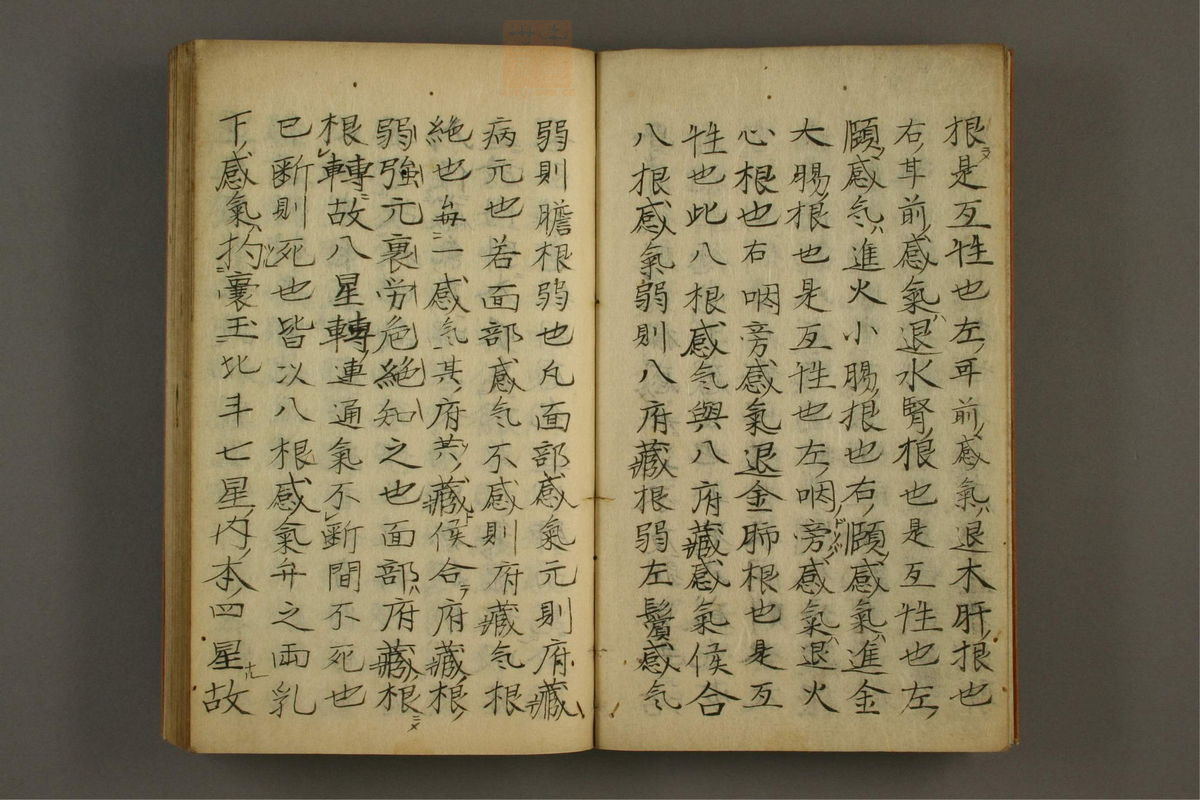 根是互性也左耳前感氣退木肝根也
右耳前感氣退水腎根也是互性也左
頤感気進火小腸根也右頤感氣進金
大腸根也是互性也左咽旁感氣退火
心根也右咽旁感氣退金肺根也是互
性也此八根感気與八府藏感氣候合
八根感氣弱則八府藏根弱左鬢感気
弱則膽根弱也凡面部感氣元則府藏
病元也若面部感気不感則府藏気根
絶也毎一感気其府共藏候合府藏根
弱強元裏労危絶知之也面部府藏根
根轉故八星轉連通氣不断間不死也
已断則死也皆以八根感氣弁之両乳
下感氣扚嚢玉北斗七星内本四星故